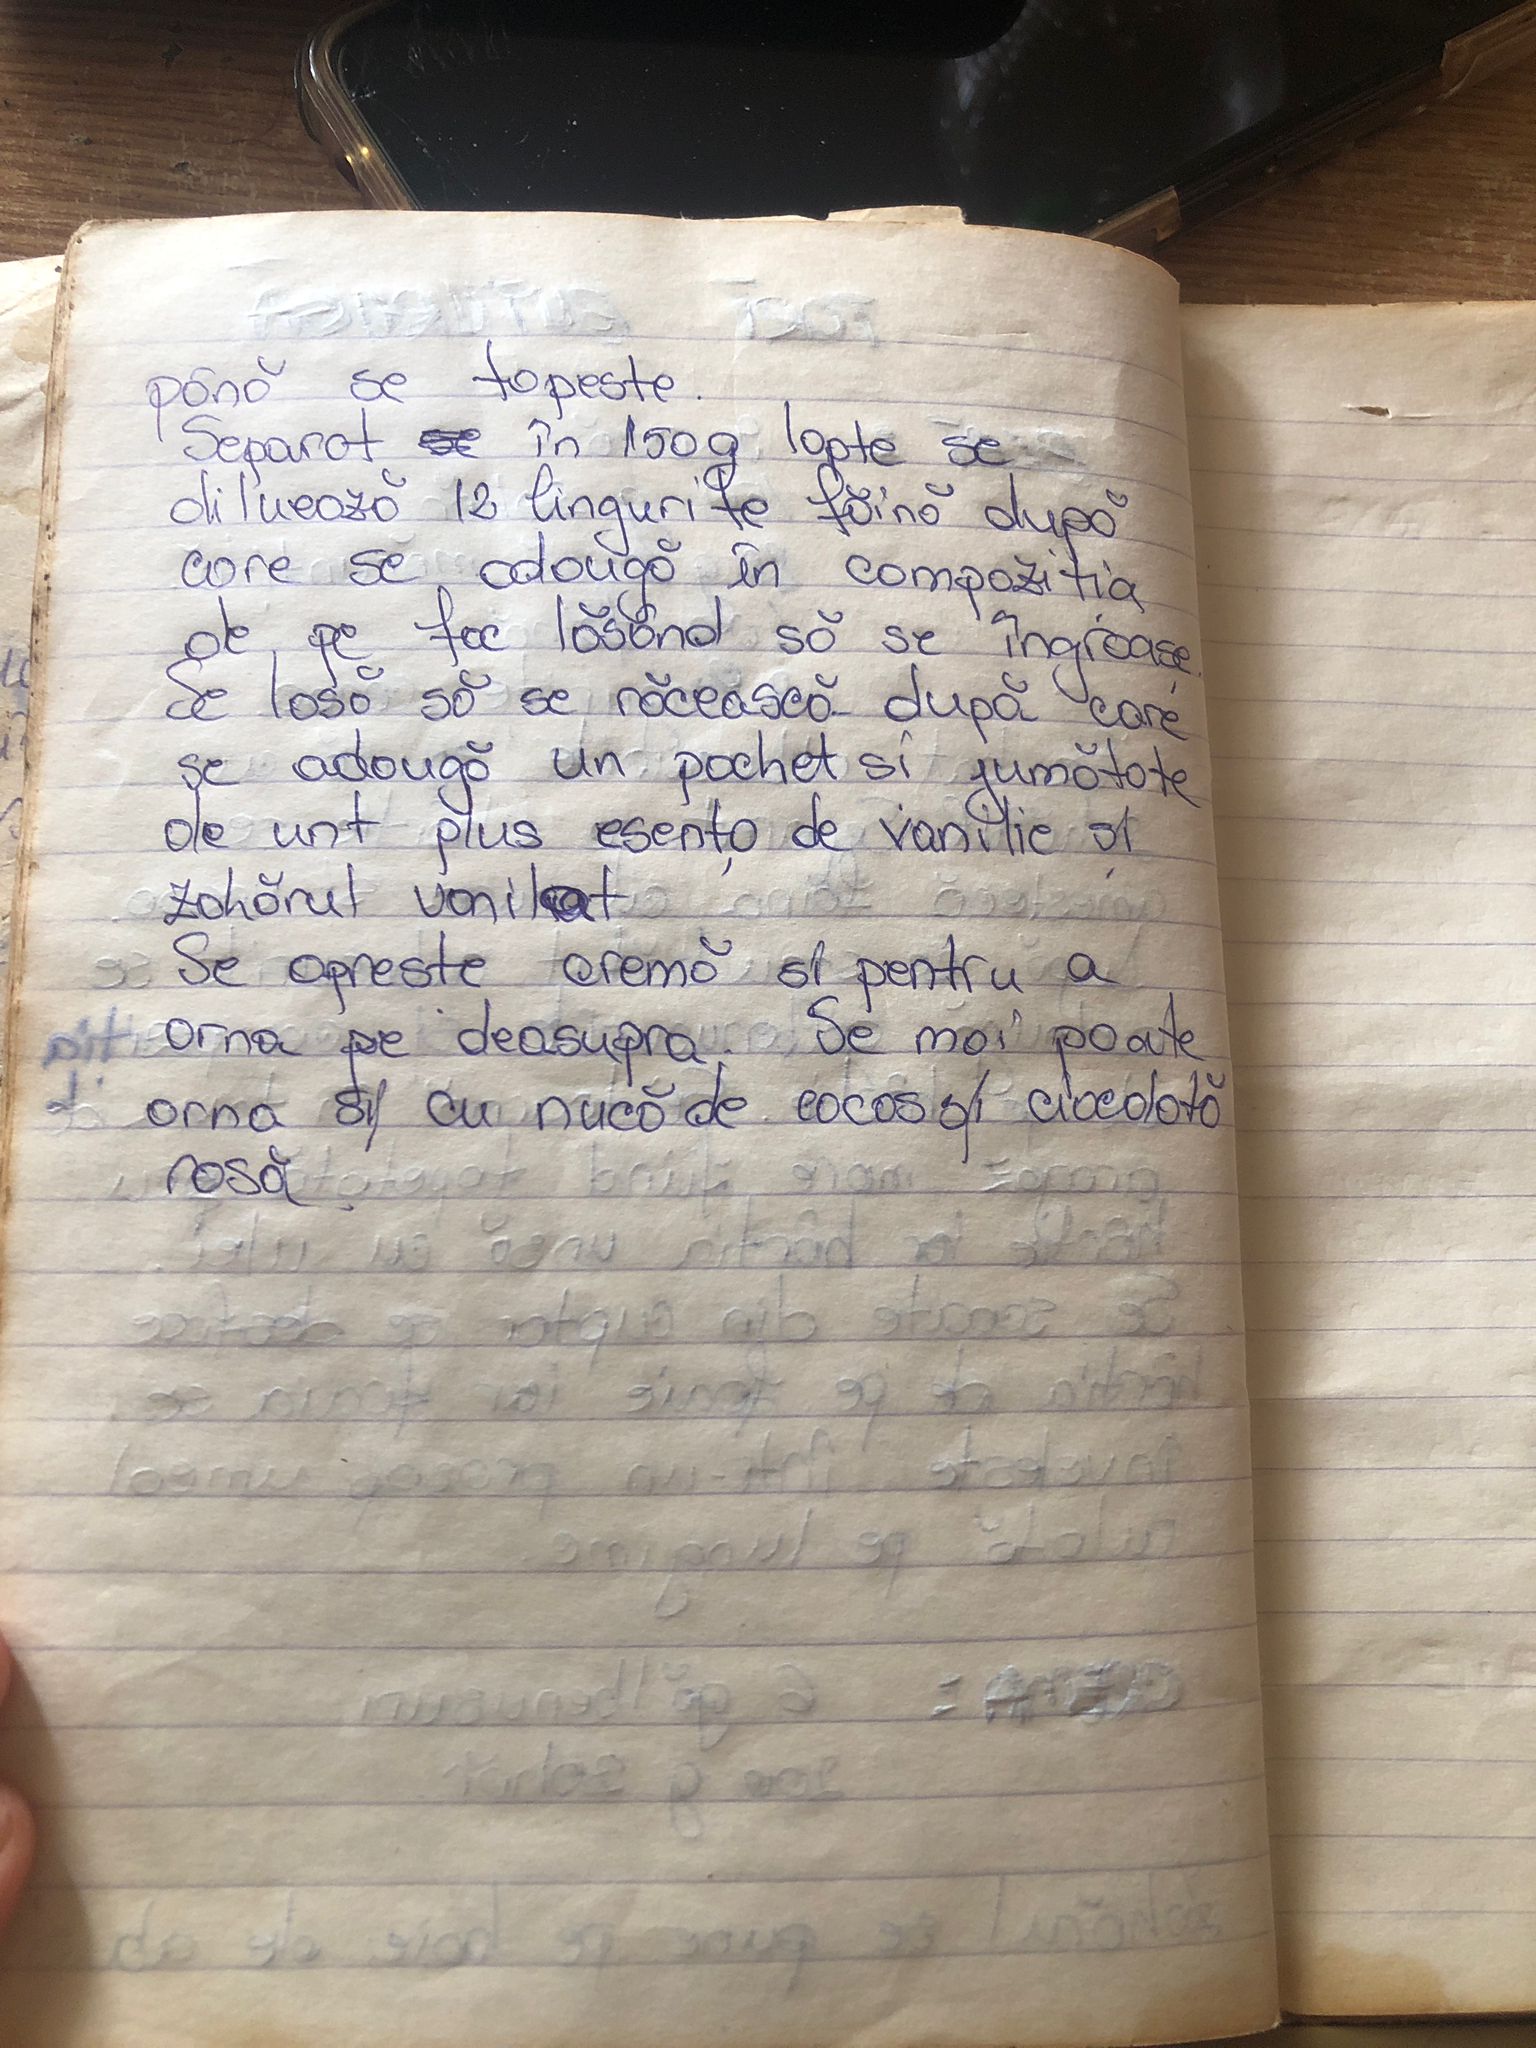 până se topeste.
Separat se în 150g lapte se
diluează 12 lingurite făină după
care se adaugă în compoziția
de pe foc lăsând să se îngroașe.
Se lasă să se răcească după care
se adaugă un pachet si jumătate
de unt plus esență de vanilie și
zahărul vanilat
Se opreste cremă si pentru a
orna pe deasupra. Se mai poate
orna si cu nucă de cocos și ciocolată
rasă